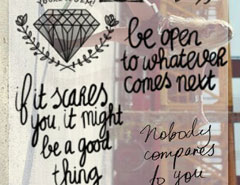 be open
to whatever
comes next
if it scares
you, it might
be a good
thing
Nobody
compares
to you